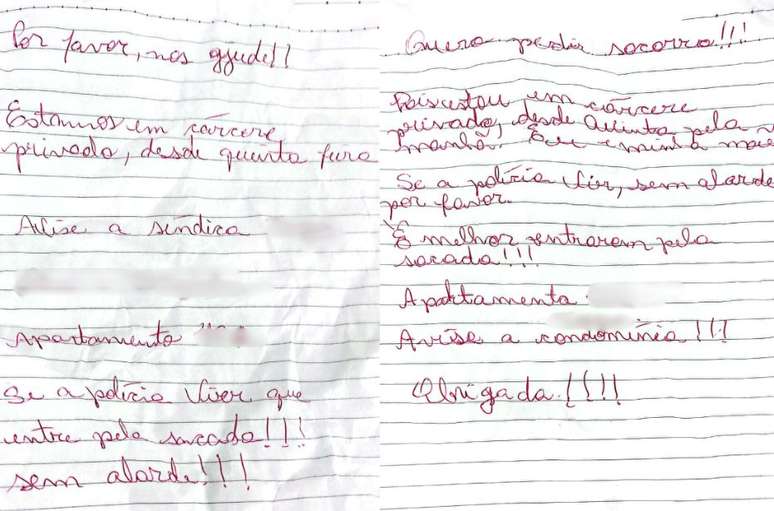 Por favor, nos ajude!!
Estamos em cárcere
privado, desde quinta fura
Avise a síndica
Apartamento
Se a polícia vier que
entre pela sacada!!!
sem alarde!!!
Quero pedir socorro!!!
Pois estou em cárcere
privado, desde Quinta pela
manhã. Eu e minha mãe
Se a polícia vier, sem alarde
por favor.
É melhor entrarem pela
sacada!!!
Apartamento
Avise a condomínia!!!
Obrigada!!!!